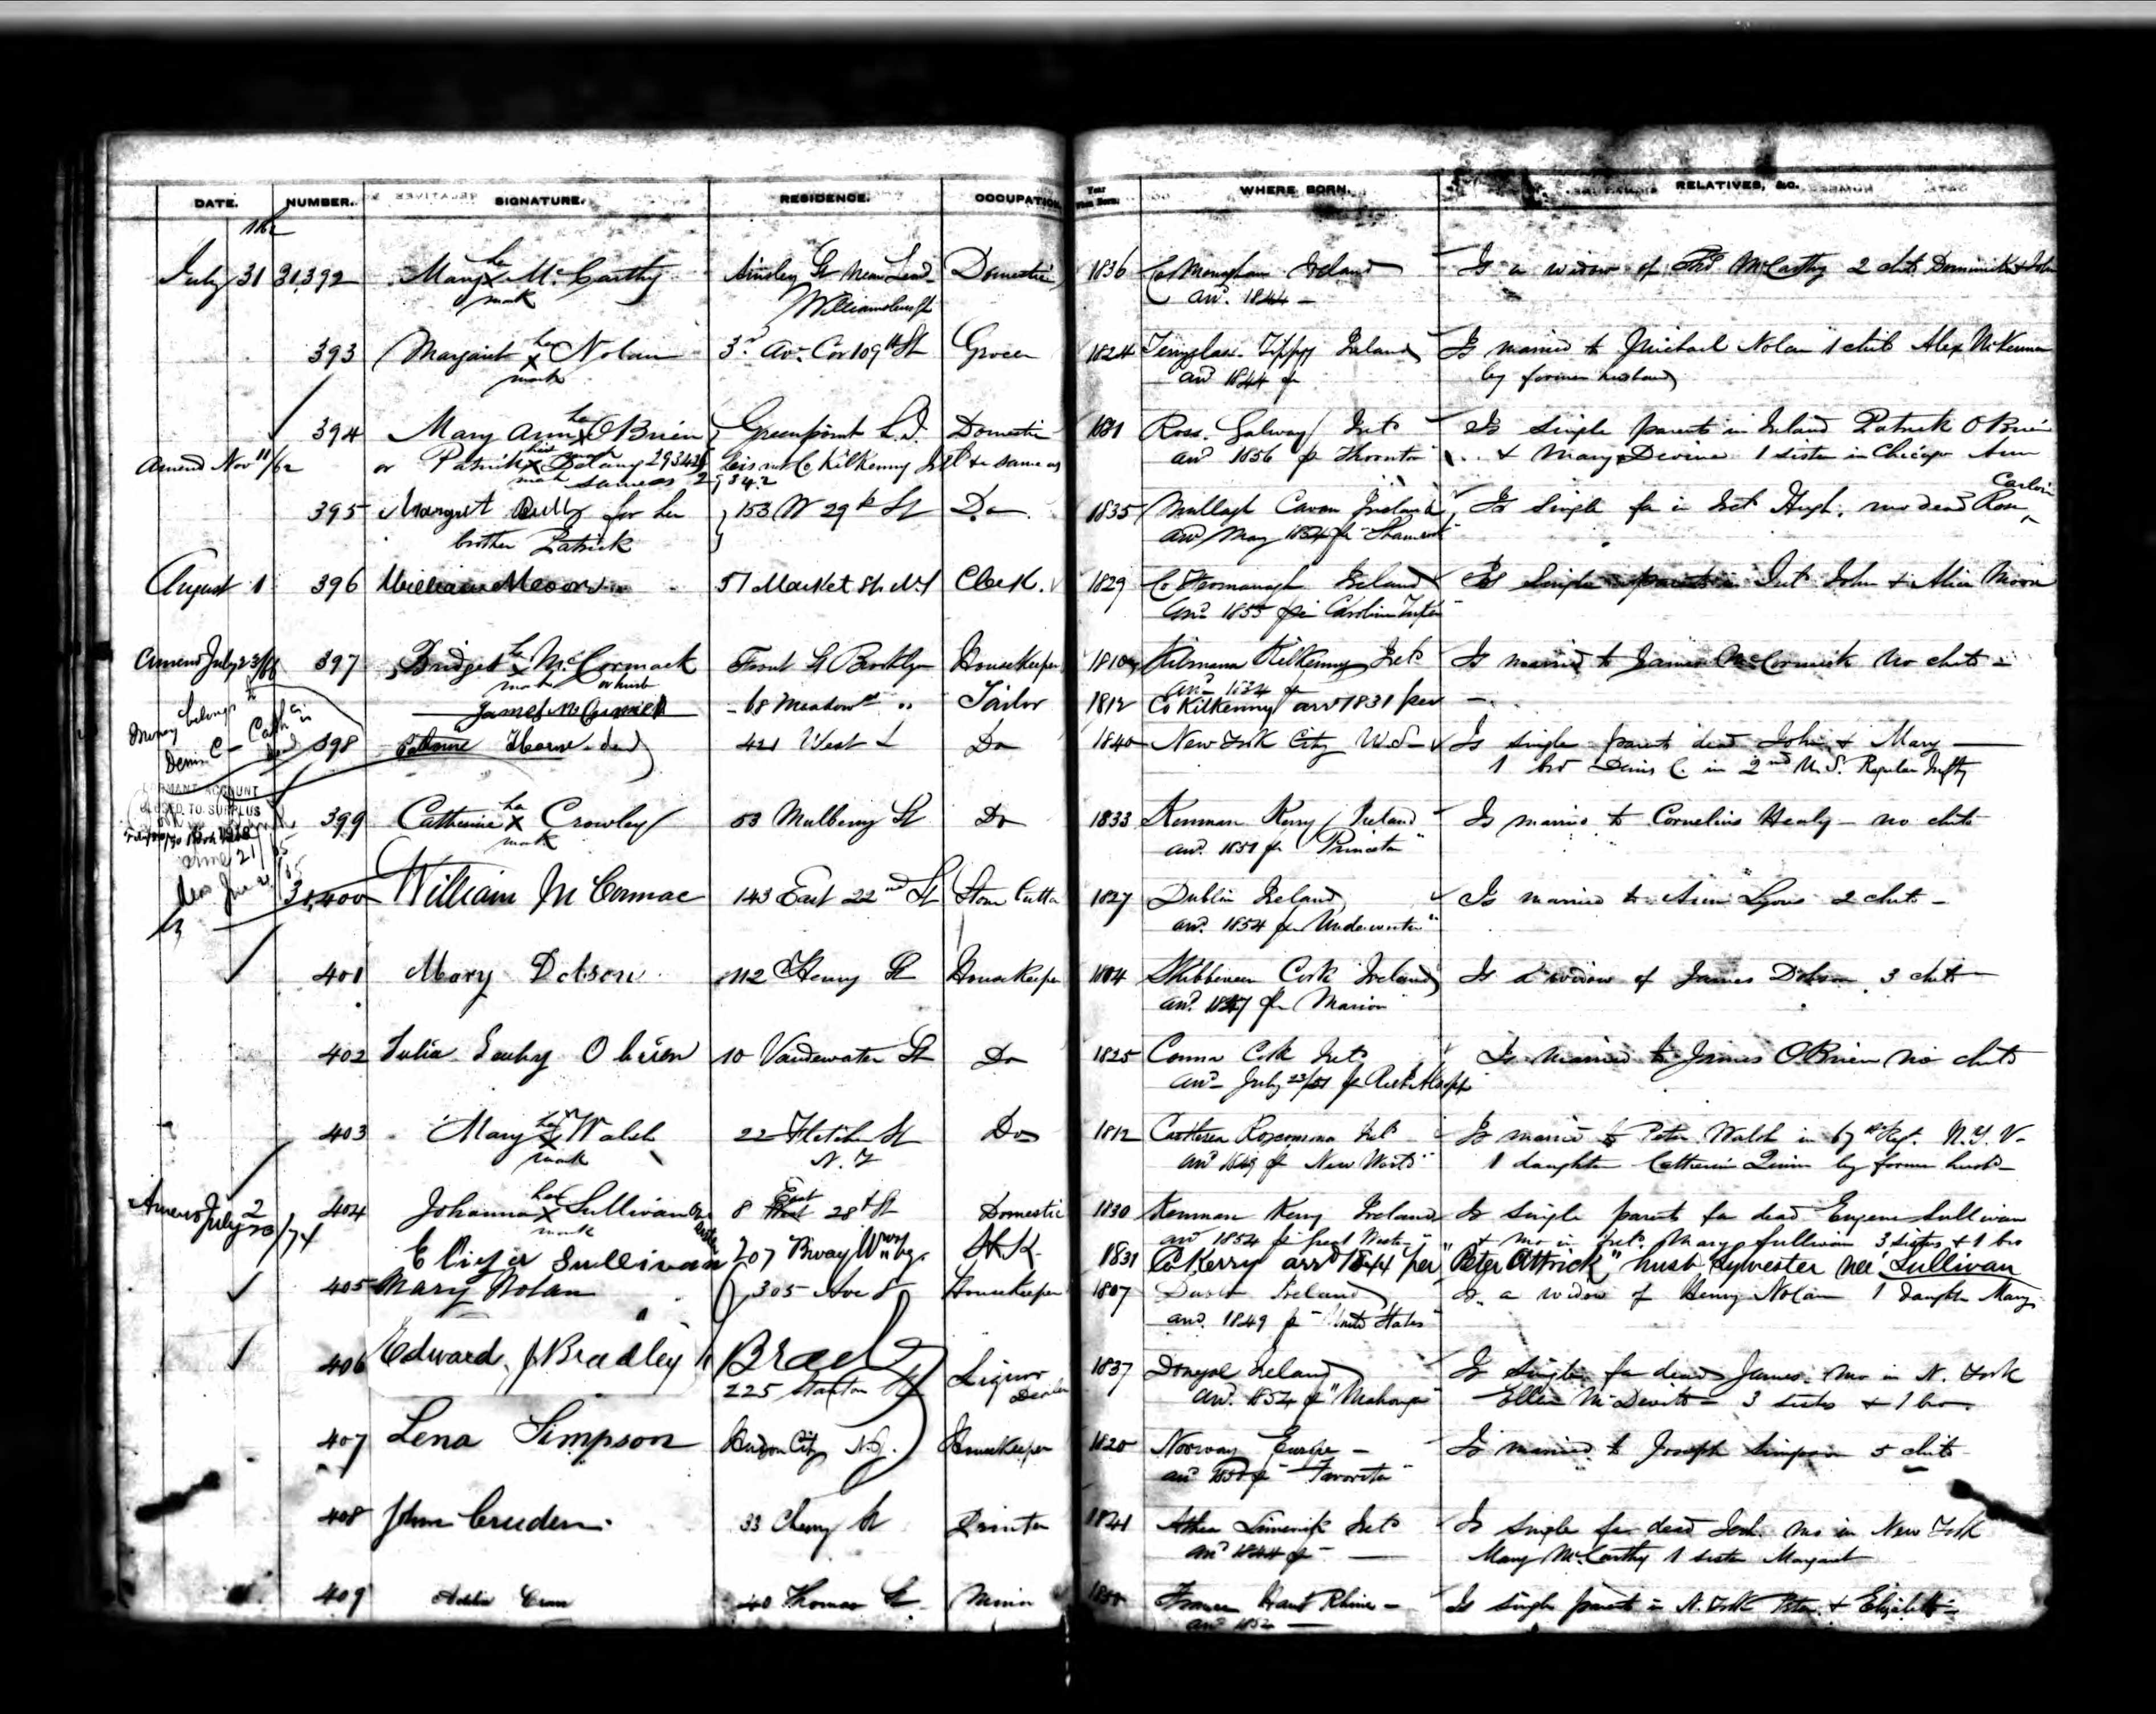 DATE. NUMBER. SIGNATURE. RESIDENCE. OCCUPATION. Year When Born. WHERE BORN. RELATIVES, &C.
July 31 31,392 Mary her x mark McCarthy Ainsley St near Williamsburgh Domestic 1836 Co Monaghan Ireland Is a widow of McCarthy 2 chds Dominick & John
arrd. 1844 —
393 Margaret her x mark Nolan 3rd Av. Cor 109th St Grocer 1824 Tippy Ireland Is married to Michael Nolan 1 child Alex McKennan
arrd 1844 pr by former husband
394 Mary Ann her x mark O'Brien Greenpoint L.I. Domestic Ross. Galway Ireld Is single parents in Ireland Patrick O'Brien
Amend Nov 11/62 or Patrick his x mark Delany Co Kilkenny same as arrd 1856 pr Thornton & Mary Devine 1 sister in Chicago Ann
395 Margret for her 153 W 29th St Do 1835 Mullagh Cavan Ireland Is single fa in Ireld Hugh. mo dead Rose
brother Patrick arrd May 1854 pr "Shamrock"
August 1 396 William Moore 51 Market St. N.Y Clerk. 1829 Ireland Is single parents in Ireld John & Alice Moore
arrd 1855 pr Caroline
Amend July 23/66 397 Bridget her x mark McCormack Front St Brooklyn Housekeeper 1810 Kilkenny Ireld Is married to James McCormick no chds —
or husb arrd 1834 pr
James McCormick 68 Meadow st " Tailor 1812 Co Kilkenny arrd 1831 per —
Money belongs to Denis C — Cath is dead
398 Catherine Hearne dead 421 West St Do 1840 New York City U.S— Is single parents dead John & Mary —
1 bro Denis C. in 2nd U.S. Regular Infty
DORMANT ACCOUNT
CLOSED TO SURPLUS
399 Catherine her x mark Crowley 53 Mulberry St Do 1833 Kenmare Kerry Ireland Is married to Cornelius Healy — no chds
arrd. 1851 pr "Princeton"
31,400 William McCormac 143 East 22nd St Stone Cutter 1827 Dublin Ireland Is married to Ann Lyons 2 chds —
arrd. 1854 pr "Underwriter"
401 Mary Dobson 112 Henry St Housekeeper 1804 Skibbereen Cork Ireland Is a widow of James Dobson 3 chds
arrd. 1847 pr Marion
402 Julia Leahy O brien 10 Vandewater St Do 1825 Conna Cork Ireld Is married to James O'Brien no chds
arrd— July 23/51 pr Richd Alsop
403 Mary her x mark Walsh 22 Fletcher St N.Y Do 1812 Roscommon Ireld Is married to Peter Walsh in 67th Regt. N.Y.V—
arrd 1849 pr New World 1 daughter Catherine Quinn by former husbd—
Amend July 23/74 404 Johanna her x mark Sullivan or sister 8 East 28th St Domestic 1830 Kenmare Kerry Ireland Is single parents fa dead Eugene Sullivan
arrd 1854 pr Great Western & mo in Ireld. Mary Sullivan 3 sisters & 1 bro
Eliza Sullivan 207 Bway Wmsbg. H.K. 1831 Co Kerry arrd 1844 per "Peter Attrick" husb Sylvester neé Sullivan
405 Mary Nolan 305 Ave Housekeeper 1807 Ireland Is a widow of Henry Nolan 1 daughter Mary
arrd. 1849 pr "United States"
406 Edward J Bradley Brad
225 Stanton St Liquor Dealer 1837 Donegal Ireland Is single fa dead James. mo in N. York
arrd. 1854 pr Ellen McDevitt— 3 sisters & 1 bro.
407 Lena Simpson Hudson City N.J. Housekeeper 1820 Norway Europe — Is married to Joseph Simpson 5 chds
arrd 1850 pr "Favorite"
408 John Cruden 33 Cherry St Printer 1841 Athea Limerick Ireld Is single fa dead mo in New York
arrd 1844 pr — Mary McCarthy 1 sister Margaret
409 40 Thomas St France Haut Rhine — Is single parents in N. York Peter & Elizabeth —
arrd 1852 —